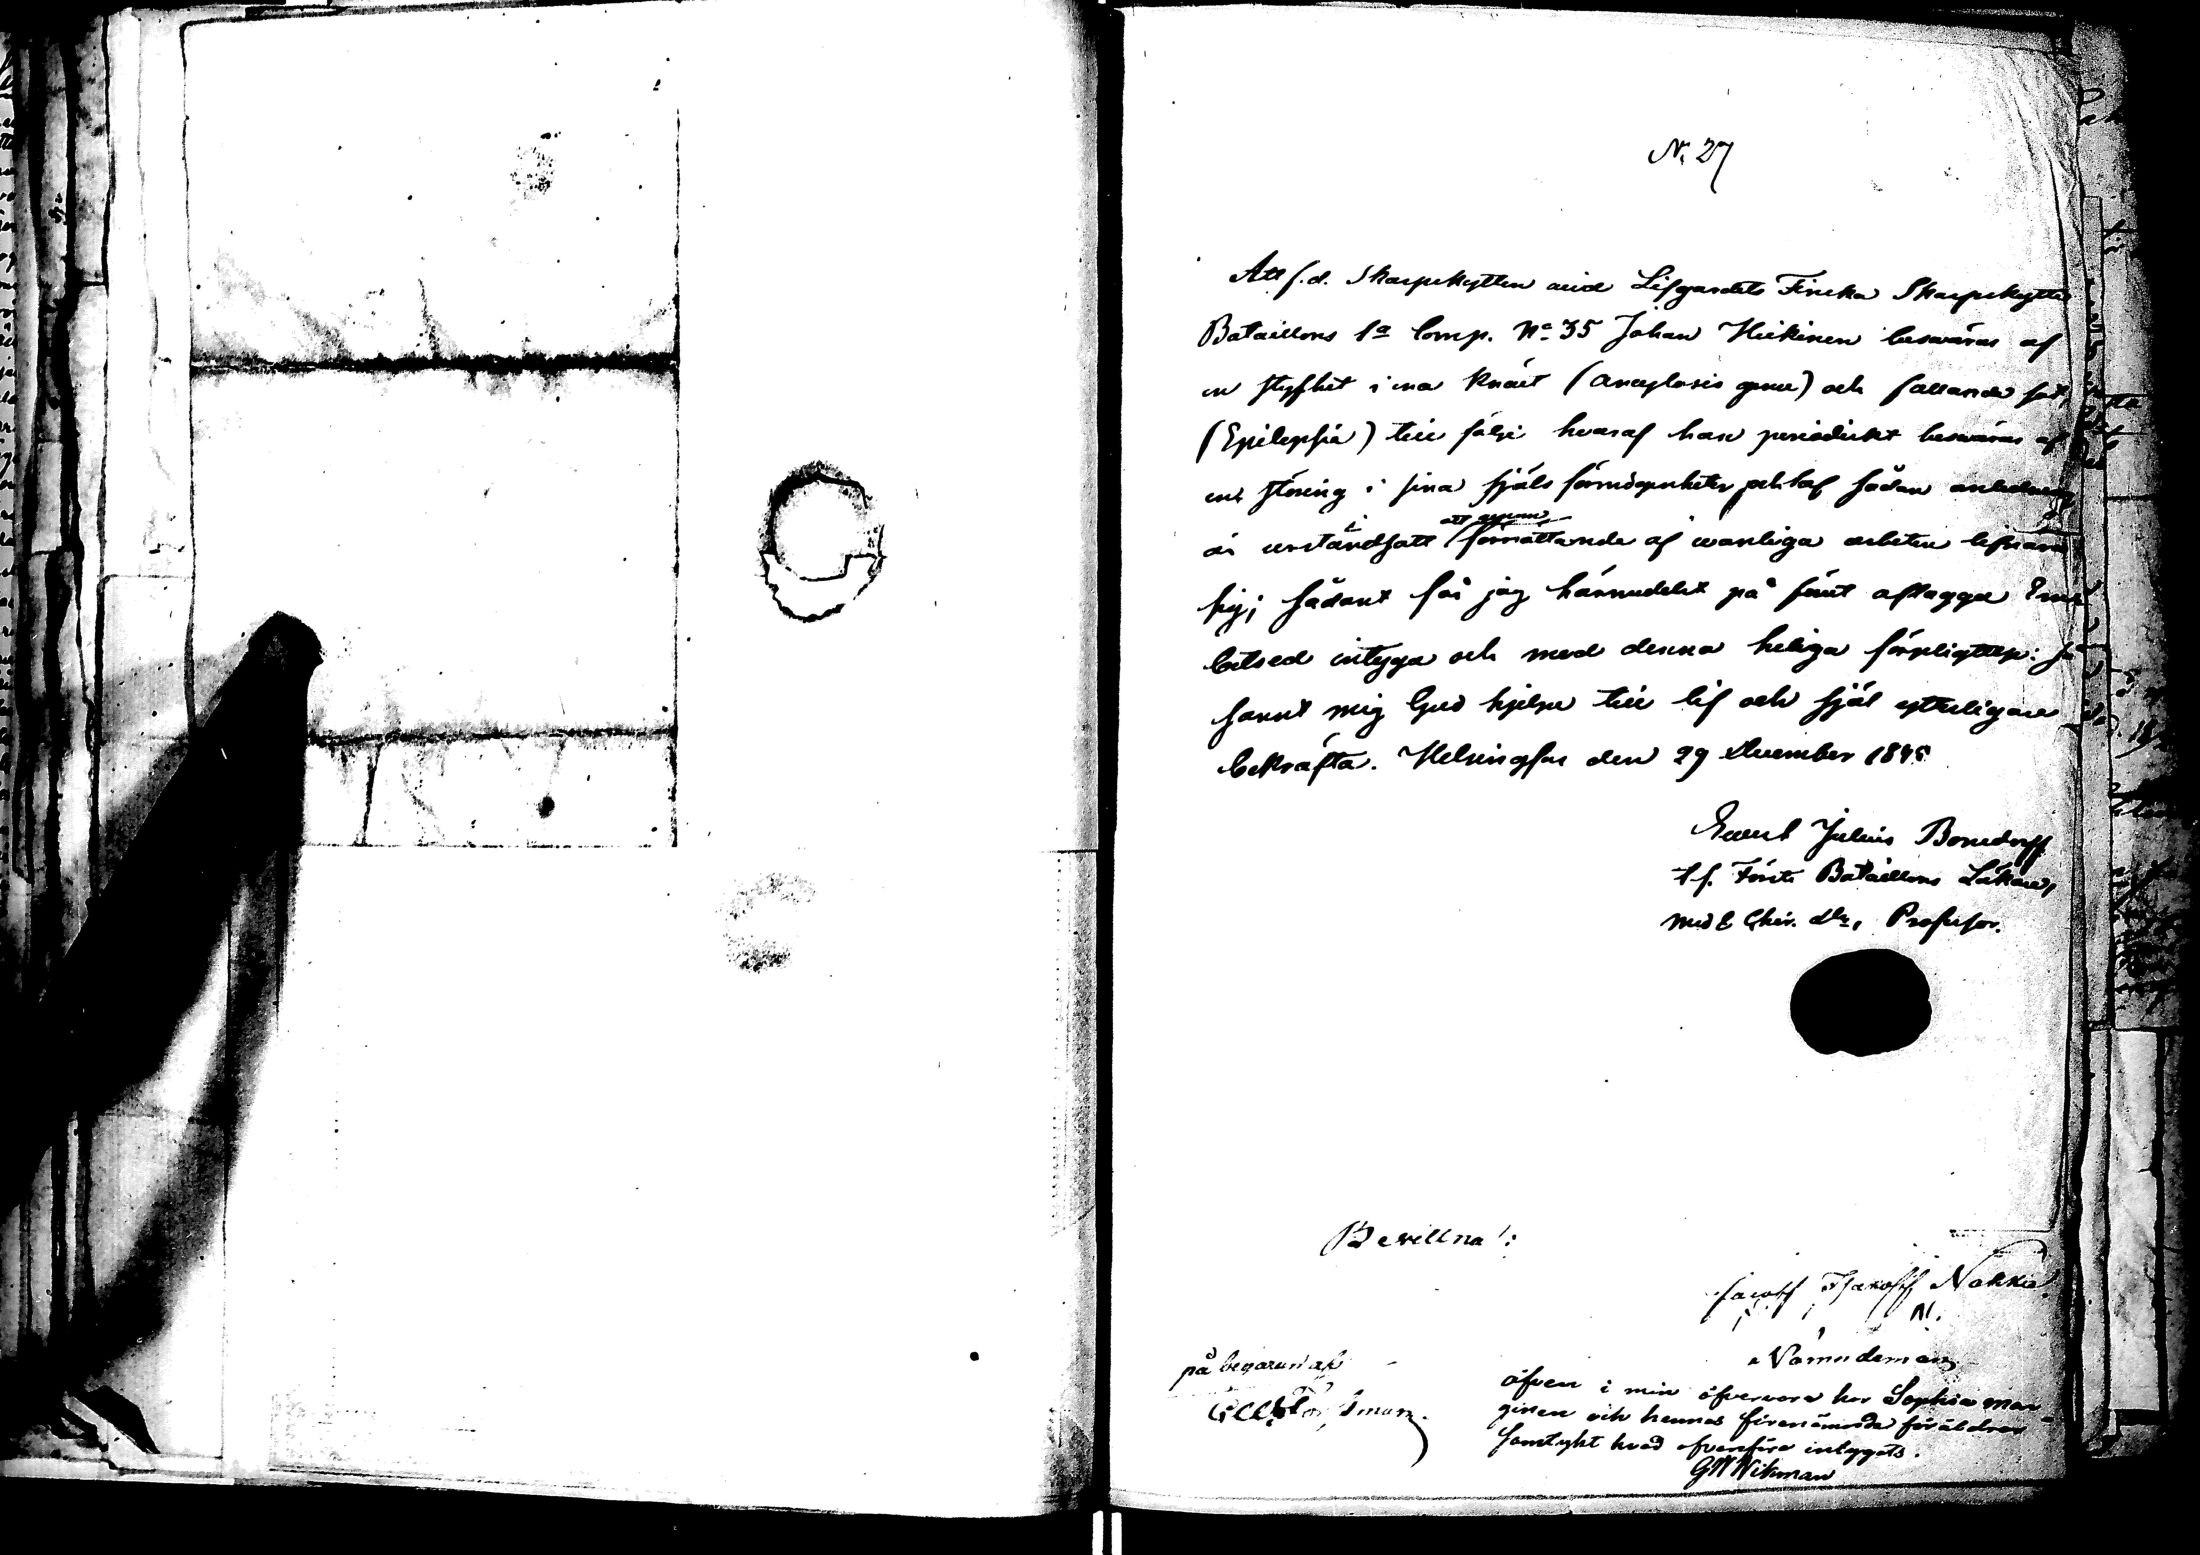 N. 27
Att f.d. Skarpskytten vid Lifgardets Finska Skarpskytte
Bataillons 1a Comp. No 35 Johan Hickinen besväras af
en styfhet i ena knäet (Ancylosis genu) och fallande sot,
(Epilepsia) till följe hvaraf han periodiskt besväras af
en störing i sina själs förmögenheter och af sådan anledning
är urståndsatt att genom förrättande af vanliga arbeten lifnära
sig; sådant får jag härmedelst på förut aflagde Em
betsed intyga och med denna heliga förpligtelse: så
sannt mig Gud hjelpe till lif och själ ytterligare
bekräfta. Helsingfors den 29 December 1845
Evert Julius Bonsdorff
t.f. Förste Bataillons Läkare,
Med & Chir. Dr, Professor.
Bevittna:
Jacob Isakoff Nokkia
N.
Nämndeman
på begäran af
äfven i min öfvervaro har Sophia Mar-
ginen och hennes förenämnde föräldrar
samtykt hvad ofvanföre intygats.
GW Wikman